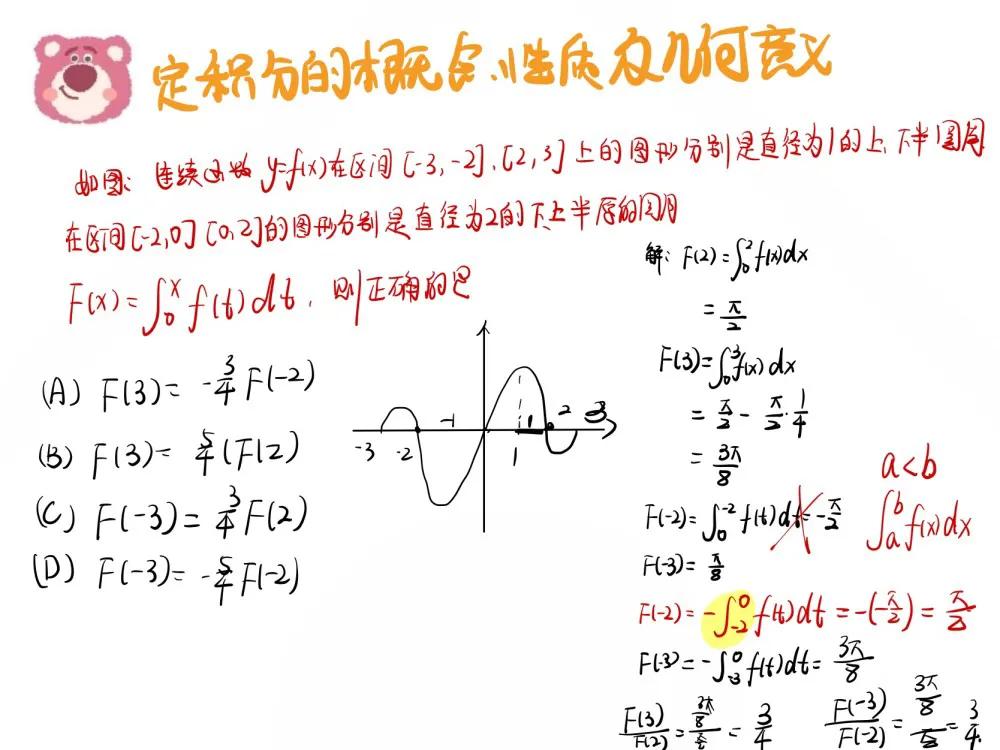 定积分的概念、性质及几何意义
如图：连续函数 y=f(x)在区间 [-3,-2]、[2,3] 上的图形分别是直径为1的上、下半圆周
在区间[-2,0] [0,2]的图形分别是直径为2的下、上半
F(x)=∫₀ˣ f(t)dt，则正确的是
(A) F(3)= -3/4 F(-2)
(B) F(3)= 5/4(F(2)
(C) F(-3)= 3/4 F(2)
(D) F(-3)= -5/4 F(-2)
-3 -2 -1 1 1 2 3
解: F(2)=∫₀² f(x)dx
= π/2
F(3)=∫₀³ f(x)dx
= π/2 - π/2·1/4
= 3π/8
F(-2)=∫₀⁻² f(t)dt=-π/2
F(-3)= π/8
a<b
∫ₐᵇ f(x)dx
F(-2)= -∫₋₂⁰ f(t)dt = -(-π/2) = π/2
F(-3)= -∫₋₃⁰ f(t)dt= 3π/8
F(3)/F(2) = (3π/8)/(π/2) = 3/4
F(-3)/F(-2) = (3π/8)/(π/2) = 3/4.